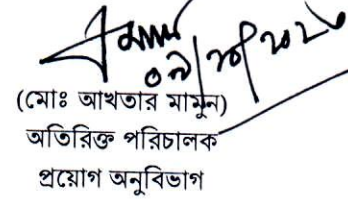 (মোঃ আখতার মামুন)
অতিরিক্ত পরিচালক
প্রয়োগ অনুবিভাগ